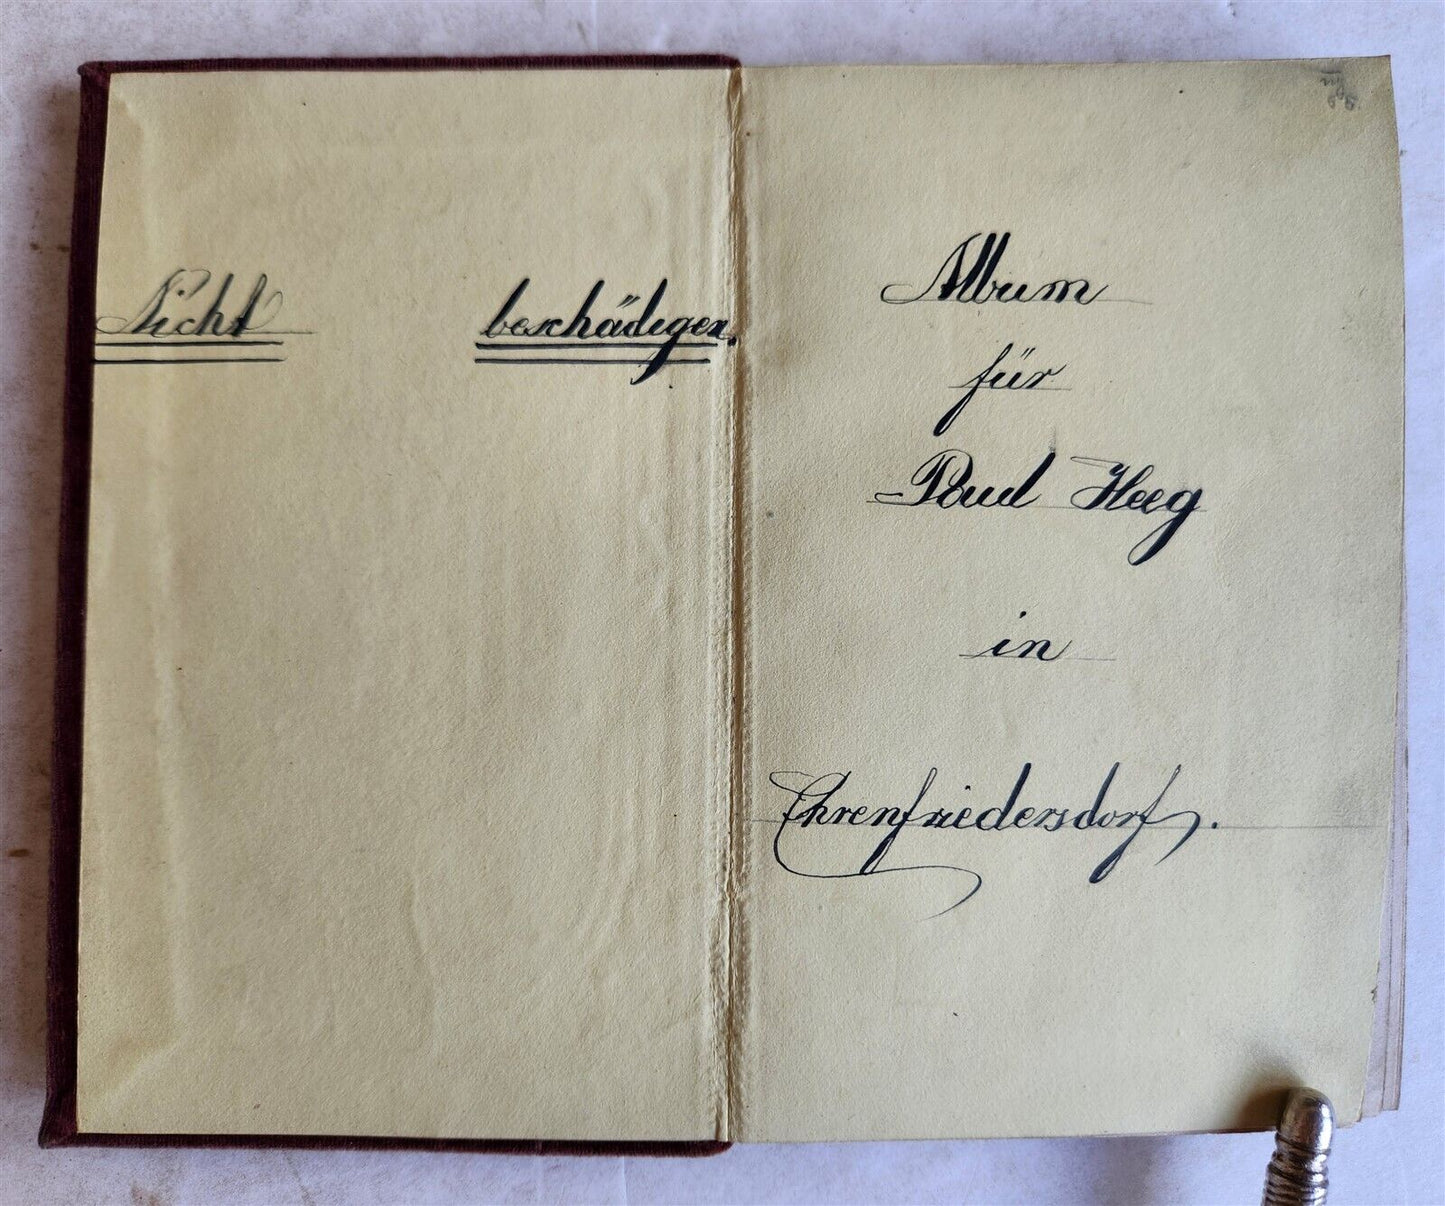 Nicht beschädigen.
Album
für
Paul Heeg
in
Ehrenfriedersdorf.